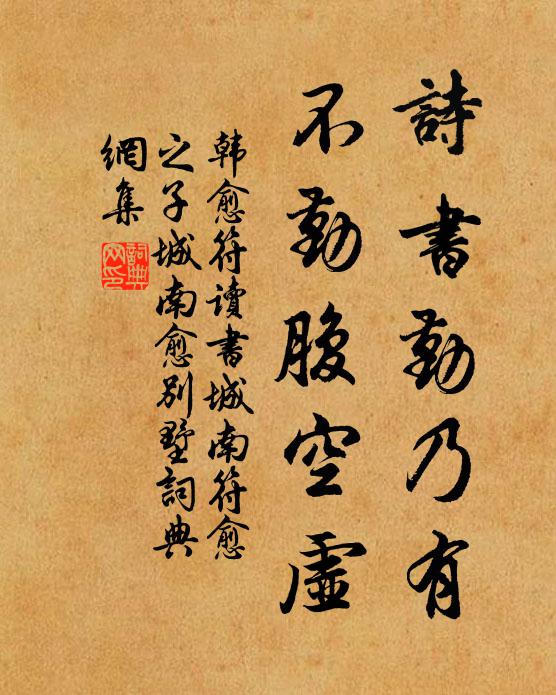 詩書勤乃有
不勤腹空虛
韩愈符讀書城南符愈
之子城南愈別墅詞典
網集
詞典
网印